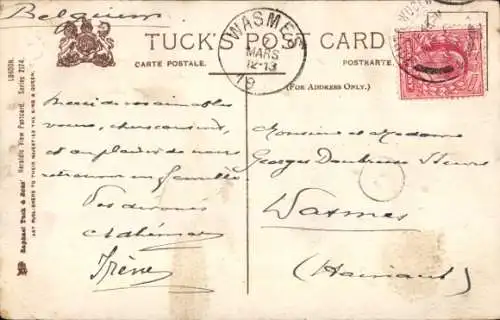 Belgium
TUCK'S POST CARD
CARTE POSTALE. POSTKARTE.
(FOR ADDRESS ONLY.)
WASMES
MARS
12-13
19
LONDON.
Raphael Tuck & Sons' Heraldic View Postcard. Series 2174.
ART PUBLISHERS TO THEIR MAJESTIES THE KING & QUEEN.
Merci de vos aimables
voeux, chers cousins,
et au plaisir de nous
retrouver en famille
Vos dévoués
Adhémar
Irène
Monsieur et Madame
Georges
Wasmes
(Hainaut)